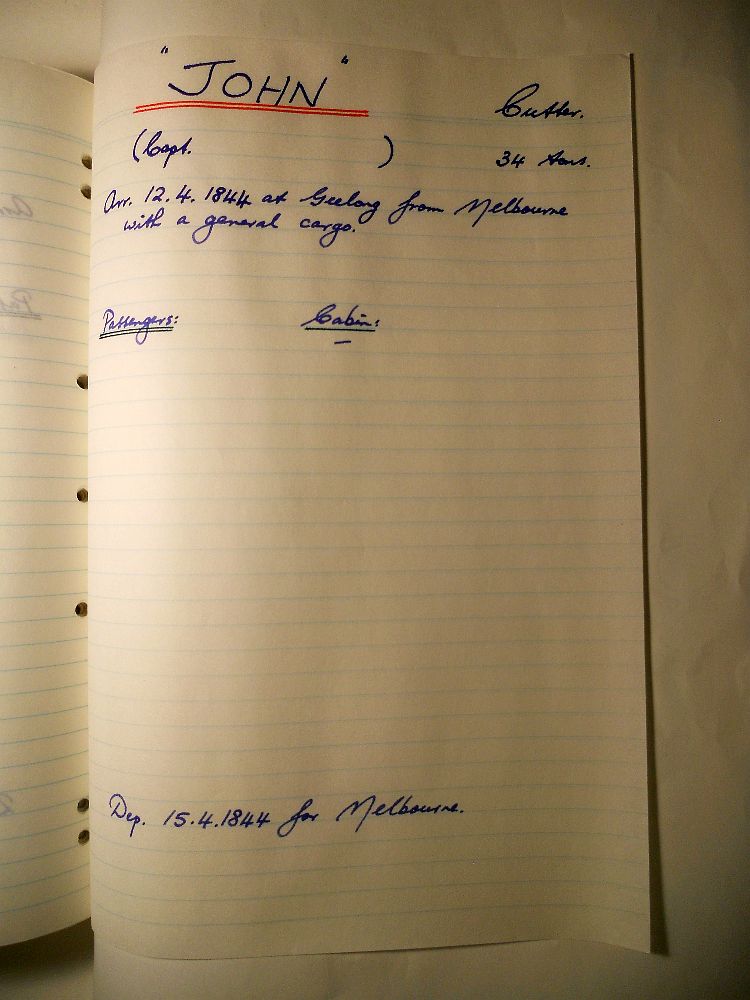 "JOHN"
Cutter.
(Capt. )
34 tons.
Arr. 12.4.1844 at Geelong from Melbourne
with a general cargo.
Passengers:
Cabin:
—
Dep. 15.4.1844 for Melbourne.